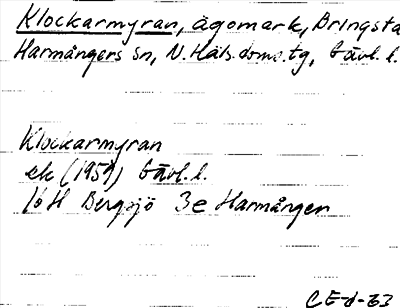 Klockarmyran, ägomark, Bringsta
Harmångers sn, N. Häls. doms. tg, Gävl. l.
Klockarmyran
ek (1959) Gävl. l.
16H Bergsjö 3e Harmången
CE-d-63